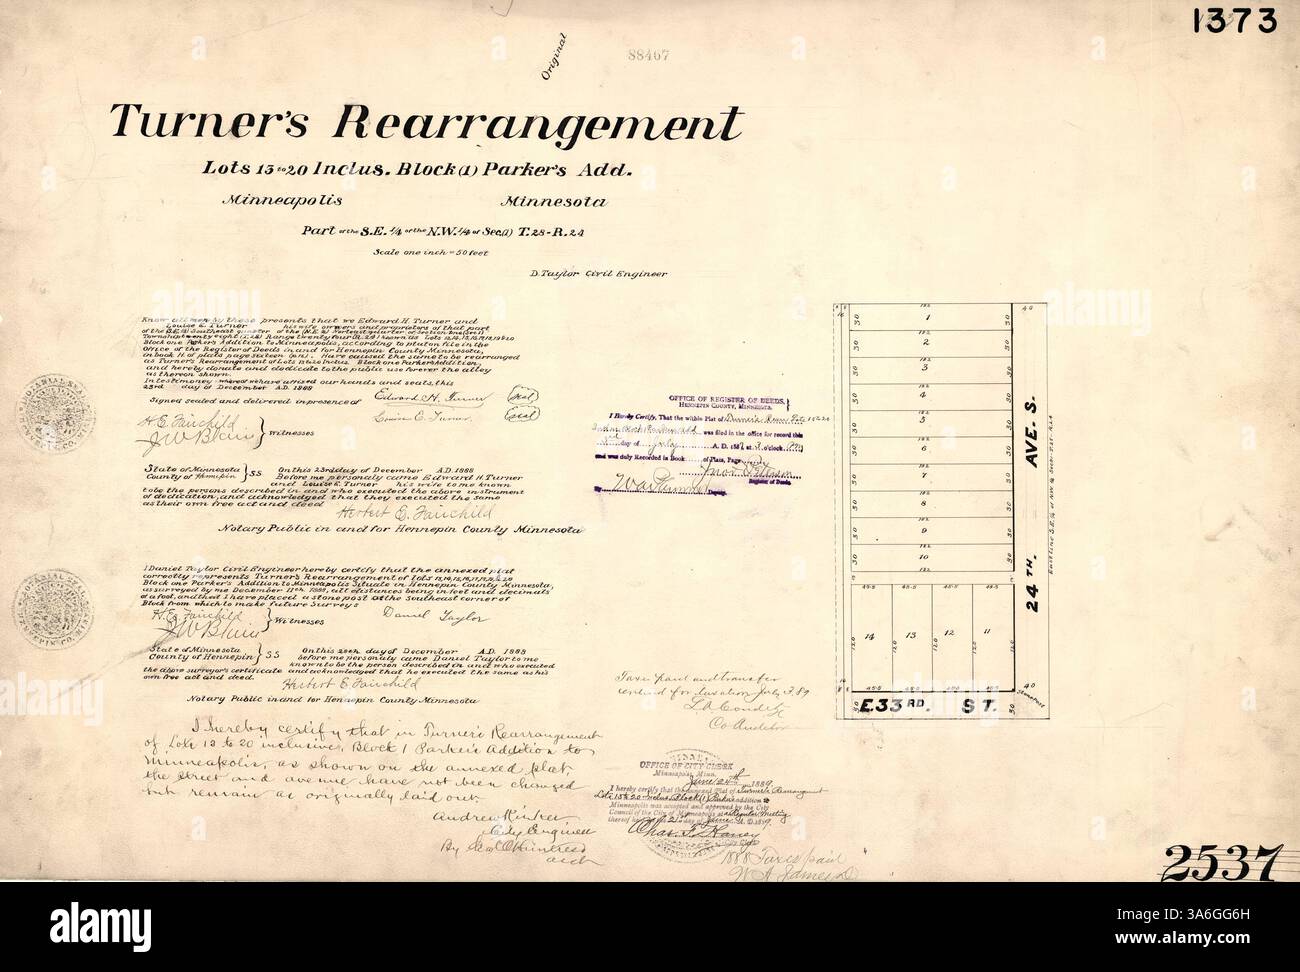 1373
Original
88467
Turner's Rearrangement
Lots 13 to 20 Inclus. Block (1) Parker's Add.
Minneapolis Minnesota
Part of the S.E. 1/4 of the N.W. 1/4 of Sec. (1) T. 28 - R. 24
Scale one inch = 50 feet
D. Taylor Civil Engineer
Know all men by these presents that we Edward H. Turner and
Louise E. Turner his wife owners and proprietors of that part
Block one Parker's Addition to Minneapolis, according to plat on file in the
Office of the Register of Deeds in and for Hennepin County Minnesota,
in book H. of plats page sixteen Have caused the same to be rearranged
as Turner's Rearrangement of Lots 13 to 20 Inclus. Block one Parker's Addition,
and hereby donate and dedicate to the public use forever the alley
as thereon shown.
In testimony whereof we have affixed our hands and seals, this the
23rd day of December A.D. 1888
Signed sealed and delivered in presence of Edward H. Turner (Seal)
H. E. Fairchild Louise E. Turner (Seal)
J W Blain Witnesses
State of Minnesota } S.S On this 23rd day of December A.D. 1888
County of Hennepin Before me personally came Edward H. Turner
and Louise E. Turner his wife to me known
to be the persons described in and who executed the above instrument
of dedication, and acknowledged that they executed the same
as their own free act and deed
Herbert E. Fairchild
Notary Public in and for Hennepin County Minnesota
I Daniel Taylor Civil Engineer hereby certify that the annexed plat
correctly represents Turner's Rearrangement of lots 13, 14, 15, 16, 17, 18, 19, 20
Block one Parker's Addition to Minneapolis Situate in Hennepin County Minnesota,
as surveyed by me December 11th 1888, all distances being in feet and decimals
of a foot, and that I have placed a stone post at the Southeast corner of
Block from which to make future Surveys
H. E. Fairchild Daniel Taylor
J W Blain Witnesses
State of Minnesota } S.S On this 20th day of December A.D. 1888
County of Hennepin before me personally came Daniel Taylor to me
known to be the person described in and who executed
the above surveyor's certificate and acknowledged that he executed the same as his
own free act and deed.
Herbert E. Fairchild
Notary Public in and for Hennepin County Minnesota
I hereby certify that in Turner's Rearrangement
of Lots 13 to 20 inclusive, Block 1 Parker's Addition to
Minneapolis, as shown on the annexed plat,
the street and avenue have not been changed
but remain as originally laid out.
Andrew Rinker
City Engineer
OFFICE OF REGISTER OF DEEDS,
HENNEPIN COUNTY, MINNESOTA.
I Hereby Certify, That the within Plat of
was filed in the office for record this
day of July A. D. 188 at o'clock
and was duly Recorded in Book of Plats, Page
Register of Deeds.
By Deputy.
Taxes paid and transfer
entered for taxation July 3, 89
Co Auditor
OFFICE OF CITY CLERK
Minneapolis, Minn.
June 24th 1889
I hereby certify that the annexed Plat of Turner's Rearrangement
Lots 13 to 20 Inclus Block (1) Parker's addition to
Minneapolis was accepted and approved by the City
Council of the City of Minneapolis at a Regular Meeting
thereof held 21st day of June A.D. 1889
Chas. F. Haney
City Clerk
1888 Taxes paid
1
2
3
4
5
6
7
8
9
10
14 13 12 11
24TH. AVE. S.
E. 33RD. ST.
Stone Post
2537
alamy
Image ID: 3A6GG6H
www.alamy.com